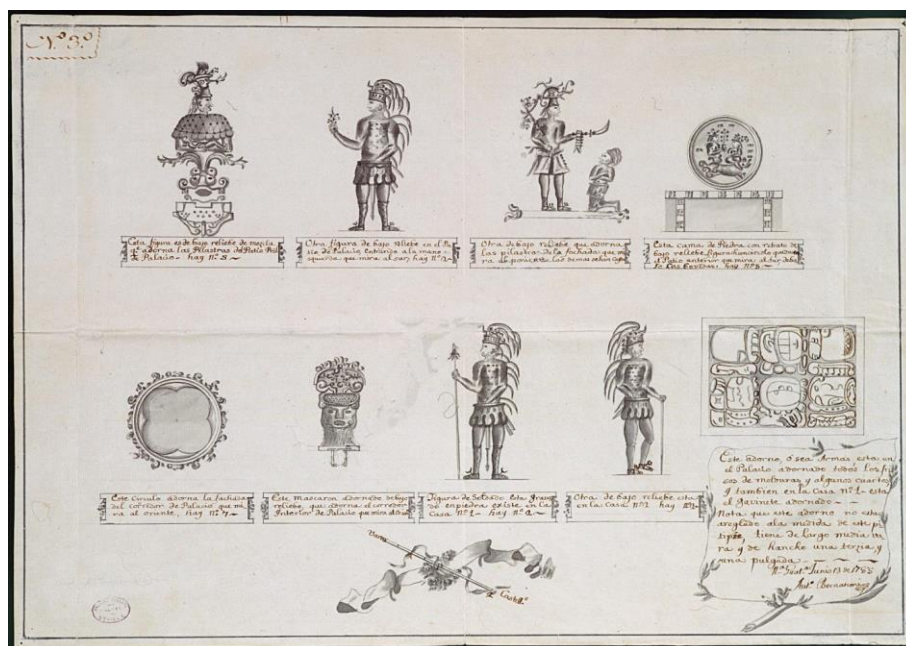 N.º 3.º
Esta figura es de bajo reliebe de mezcla
q.e adorna las Pilastras del Patio Pral
de Palacio - hay n.º 8 ~
Otra figura de bajo reliebe en el Pa
tio de Palacio entrando a la mano
izquierda que mira al sur, hay n.º 2 ~
Otra de bajo reliebe que adorna
las pilastras de la fachada que mi
ra al poniente las demas selan
Esta cama de Piedra con retrato de
bajo reliebe figura humana
el Patio anterior que mira al sur debe
hay n.º 3 ~
Este Circulo adorna la fachada
del corredor de Palacio que mi
ra al oriente, hay n.º 7 ~
Este Mascaron adornado de bajo
reliebe, que adorna el corredor
Interior de Palacio que mira
Figura de Soldado Esta gravado
en piedra existe en la
Casa n.º 1 - hay n.º 2 ~
Otra de bajo reliebe esta
en la Casa n.º 1 hay
Este adorno, ó sea Armas esta en
el Palacio adornado todos los fri
ces de molduras y algunos cuartos
y tambien en la Casa n.º 1 - esta
el Gavinete adornado ~
Nota que este adorno no esta
arreglado a la medida de este pi
tipie, tiene de largo media va
ra y de hancho una terzia, y
una pulgada ~
Junio 13 de 1785
Ant.º Bernasconi